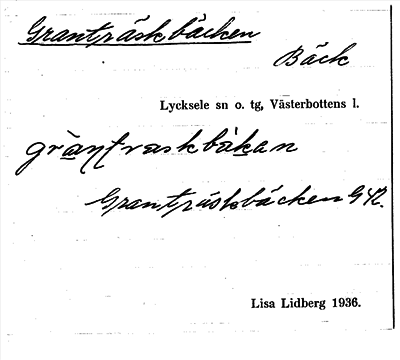 Granträskbäcken
Bäck
Lycksele sn o. tg, Västerbottens l.
gràntraskbäkan
Granträskbäcken GK.
Lisa Lidberg 1936.